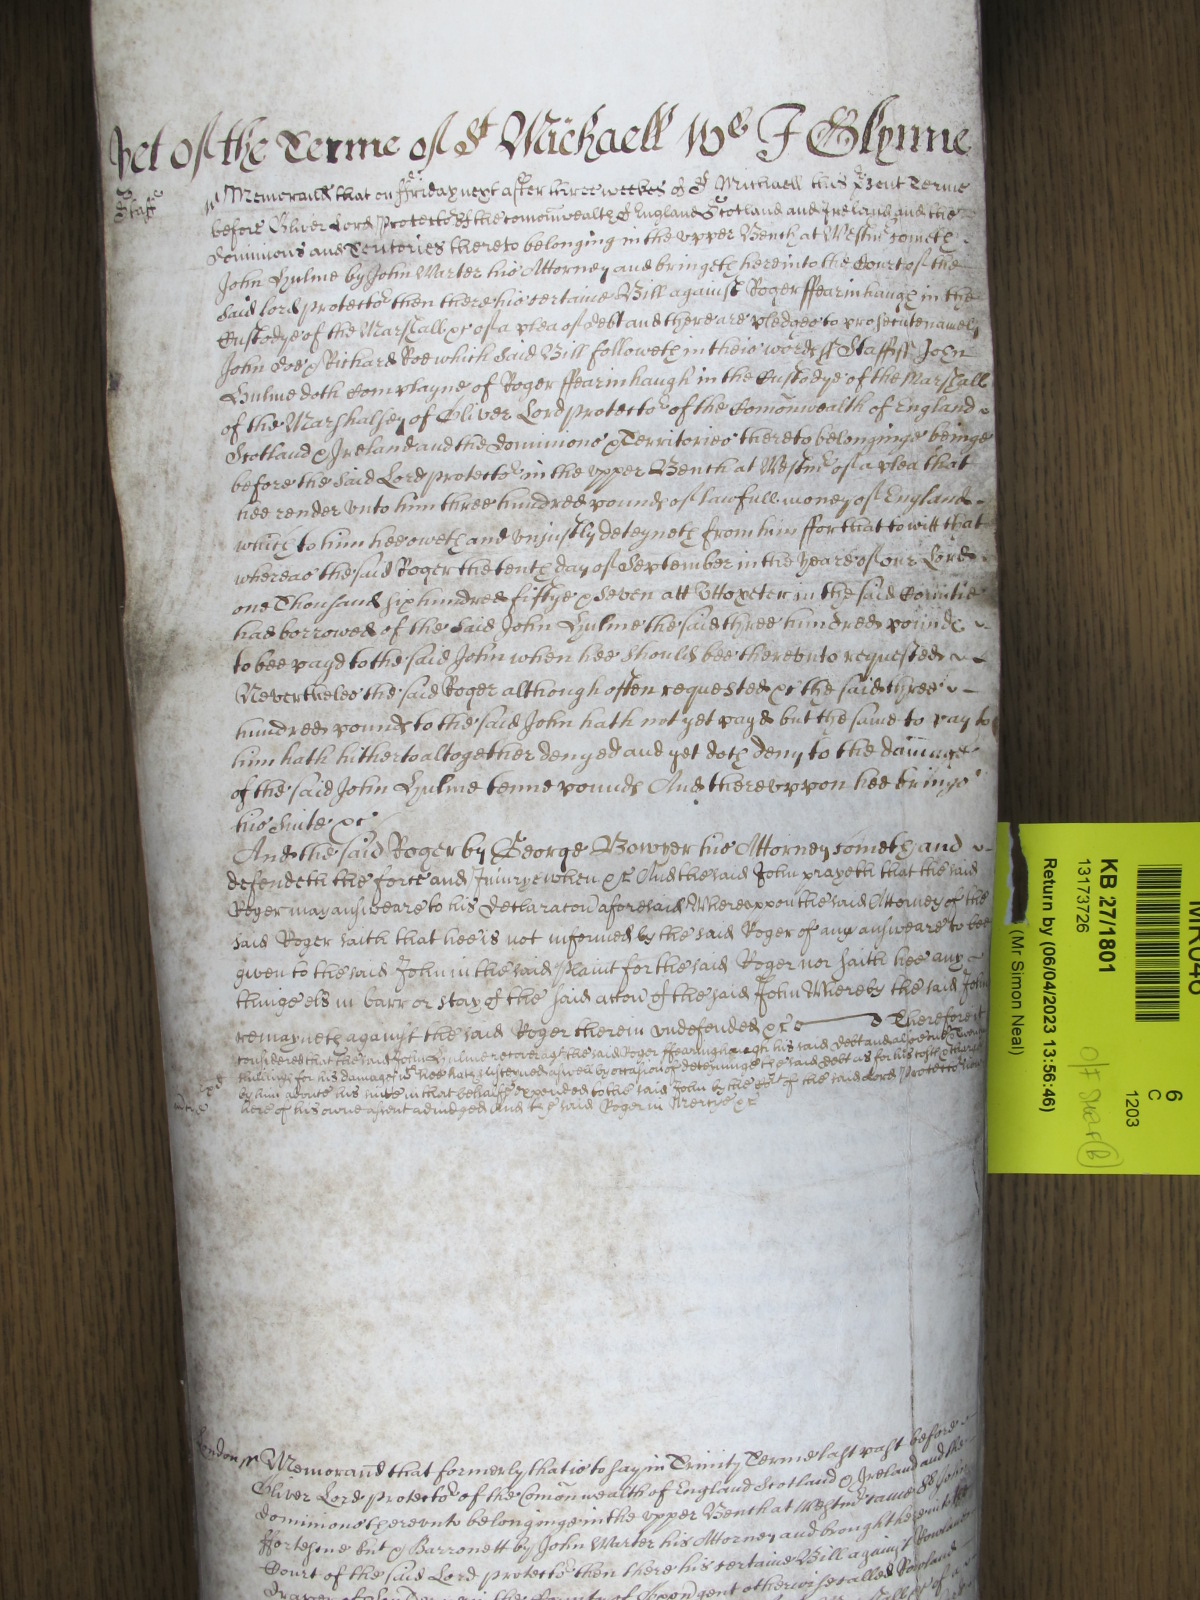 Yet of the Terme of St Michaell Wts J Glynne
Staff
Memorand that on ffriday next after three weekes of St Michaell this p̱sent Terme
before Oliver Lord Protector of the Comonwealth of England Scotland and Ireland and the
dominions and Territories thereto belonging in the upper Bench at Westmr cometh
John Hulme by John Warter his Attorney and bringeth here into the Court of the
said lord protector then there his certaine Bill against Roger ffearinhaugh in the
Custodye of the Marshall &c of a plea of debt and there are pledges to prosecute namely
John Doe & Richard Roe which said Bill followeth in theis words ss Staff ss John
Hulme doth Complayne of Roger ffearinhaugh in the Custodye of the Marshall
of the Marshalsey of Oliver Lord protector of the Comonwealth of England
Scotland & Ireland and the dominions & Territories thereto belonginge beinge
before the said Lord protector in the upper Bench at Westmr of a plea that
hee render unto him three hundred pounds of lawfull money of England
which to him hee oweth and unjustly deteyneth from him ffor that to witt that
whereas the said Roger the tenth day of September in the yeare of our Lord
one Thousand six hundred fiftye & seven att Uttoxeter in the said Countie
had borrowed of the said John Hulme the said three hundred pounds
to bee payd to the said John when hee should bee thereunto requested
Neverthelesse the said Roger although often requested &c the said three
hundred pounds to the said John hath not yet payd but the same to pay to
him hath hitherto altogether denyed and yet doth deny to the damage
of the said John Hulme tenne pounds And thereuppon hee brings
his suite &c
And the said Roger by George Bowyer his Attorney cometh and
defendeth the force and Iniurye when &c And the said John prayeth that the said
Roger may answeare to his declaracon aforesaid Whereuppon the said Attorney of the
said Roger saith that hee is not informed by the said Roger of any answeare to bee
given to the said John in the said plaint for the said Roger nor saith hee any
thinge els in barr or stay of the said accon of the said John Whereby the said John
remayneth against the said Roger therein undefended &c Therefore it is
considered that the said John Hulme recover agt the said Roger ffearinghaugh his said debt and alsoe
shillings for his damages wch hee hath susteyned aswell by occasion of deteyninge the said debt as for his costs & charges
by him aboute his suite in that behalfe expended to the said John by the Court of the said Lord Protector now
here of his owne assent adiudged And the said Roger in Mercye &c
London ss Memorand that formerly that is to say in Trinity Terme last past before
Oliver Lord protector of the Comonwealth of England Scotland & Ireland and the
dominions thereunto belonginge in the upper Bench at Westmr came Sr John
ffortescue knt & Barronett by John Warter his Attorney and brought here into the
Court of the said Lord protector then there his certaine Bill against Rowland
in the County of otherwise called Rowland
KB 27/1801
13173726
Return by (06/04/2023 13:56:46)
(Mr Simon Neal)
6
C
1203